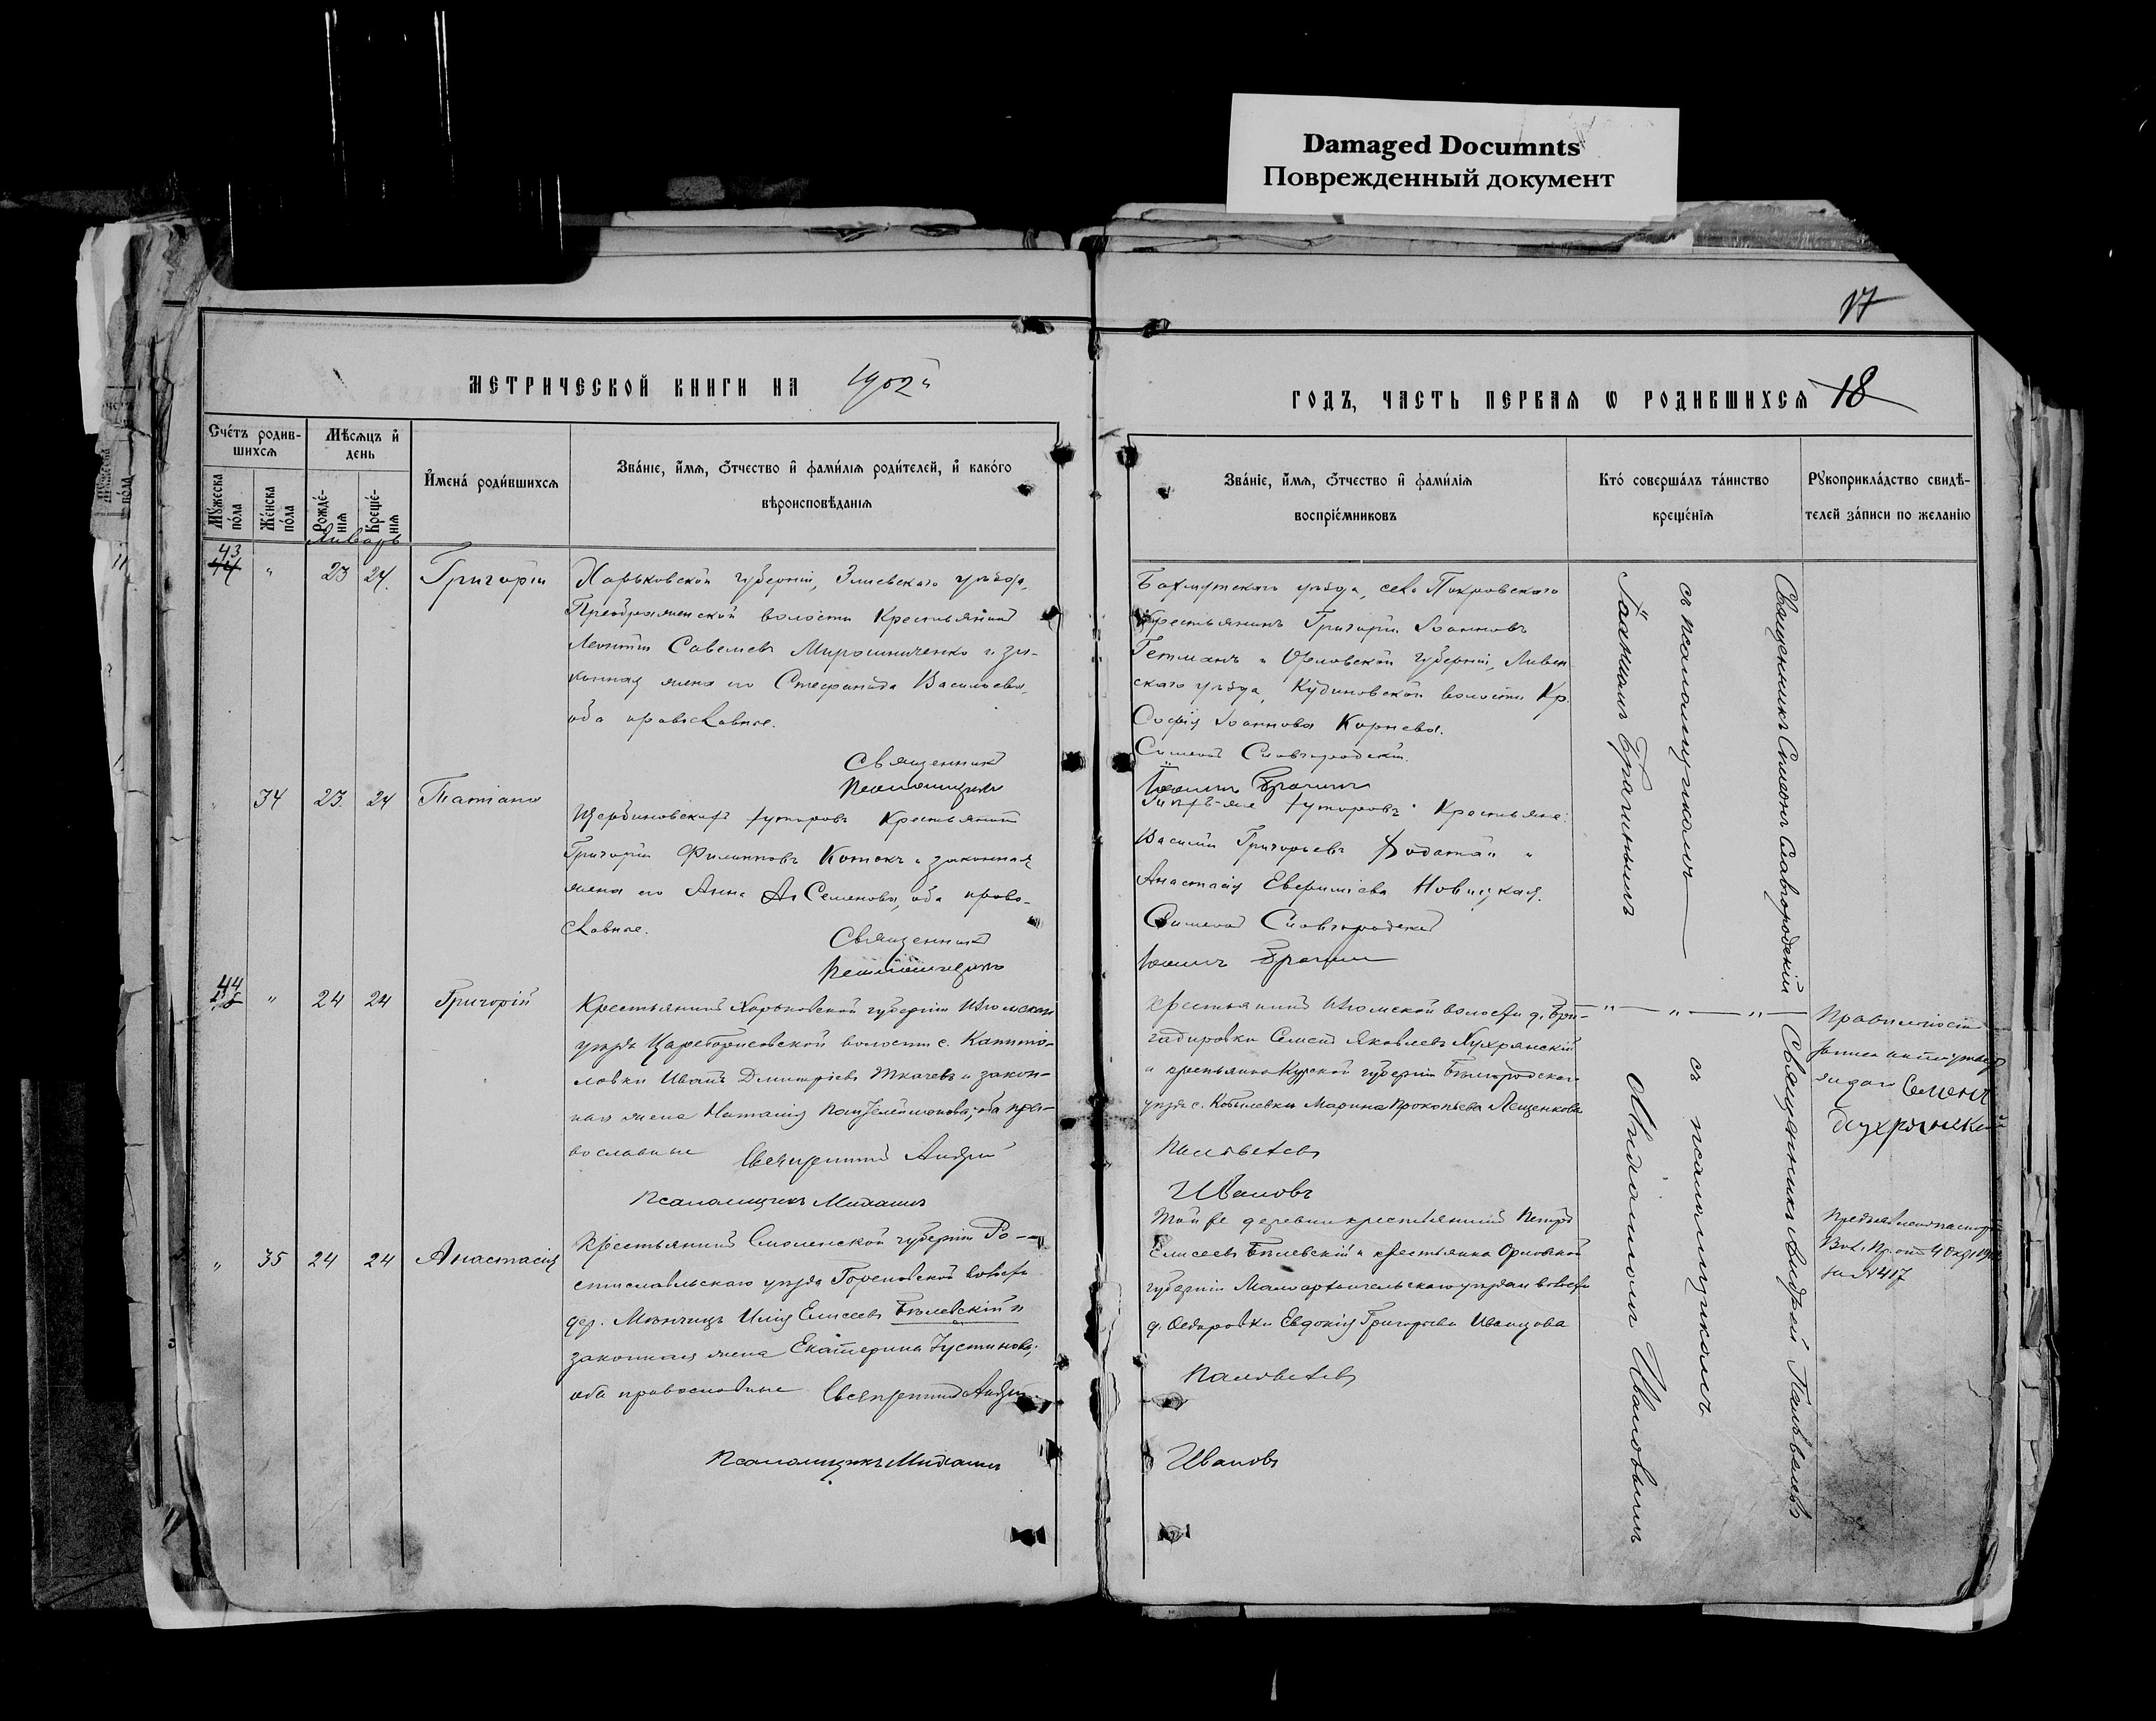 Damaged Documnts
Поврежденный документ
17
МЕТРИЧЕСКОЙ КНИГИ НА 1902й
ГОДЪ, ЧАСТЬ ПЕРВАЯ Ѡ РОДИВШИХСЯ 18
Счетъ родив-
шихся
Мѣсяцъ и
день
Имена родившихся
Званіе, имя, отчество и фамилія родителей, и какого
вѣроисповѣданія
Мужеска
пола
Женска
пола
Рожде-
нія
Креще-
нія
Январь
Званіе, имя, отчество и фамилія
воспріемниковъ
Кто совершалъ таинство
крещенія
Рукоприкладство свидѣ-
телей записи по желанію
43
44 " 23 24. Григорій
Харьковской губерніи, Зміевскаго уѣзда,
Преображенской волости Крестьянинъ
Леонтій Савельевъ Мирошниченко и за-
конная жена его Стефанида Васильева,
оба православные.
Священникъ
Псаломщикъ
Бахмутскаго уѣзда, села Покровскаго
Крестьянинъ Григорій Іоанновъ
Гетманъ и Орловской губерніи, Ливен
скаго уѣзда, Кудиновской волости Кр.
Софія Іоаннова Корнева.
Симеонъ Славгородскій.
Іоаннъ Брагинъ
Священникъ Симеонъ Славгородскій
съ псаломщикомъ
Іоанномъ Брагинымъ
" 34 23 24 Татіана
Щербиновскихъ хуторовъ Крестьянинъ
Григорій Филипповъ Котокъ и законная
жена его Анна Семенова, оба право-
славные.
Священникъ
Псаломщикъ
хуторовъ Крестьяне:
Василій Григорьевъ и
Анастасія Евфиміева Новицкая.
Симеонъ Славгородскій
Іоаннъ Брагинъ
44
45 " 24 24 Григорій
Крестьянинъ Харьковской губерніи Изюмскаго
уѣзда Цареборисовской волости с.
Иванъ Димитріевъ Ткачевъ и закон-
ная жена Наталія Пантелеймонова; оба пра-
вославные Священникъ Андрей
Псаломщикъ Михаилъ
крестьянинъ Изюмской волости д. Бри-
гадировки Семенъ Яковлевъ Кухрянскій
и крестьянка Курской губерніи Бѣлгородскаго
уѣзда с. Кобылевки Марина Прокопьева Лещенкова
Ивановъ
" — " — " —
Священникъ Андрей
съ псаломщикомъ
Михаиломъ Ивановымъ
Правильность
записи
Семенъ
Кухрянскій
" 35 24 24 Анастасія
Крестьянинъ Смоленской губерніи Ро-
славльскаго уѣзда волости
дер. Илія Елисеевъ Бѣлевскій и
законная жена Екатерина Іустинова;
оба православные Священникъ Андрей
Псаломщикъ Михаилъ
Той же деревни крестьянинъ Петръ
Елисеевъ Бѣлевскій и крестьянка Орловской
губерніи Малоархангельскаго уѣзда волости
д. Федоровки Евдокія Григорьева Иванцова
Ивановъ
за № 417